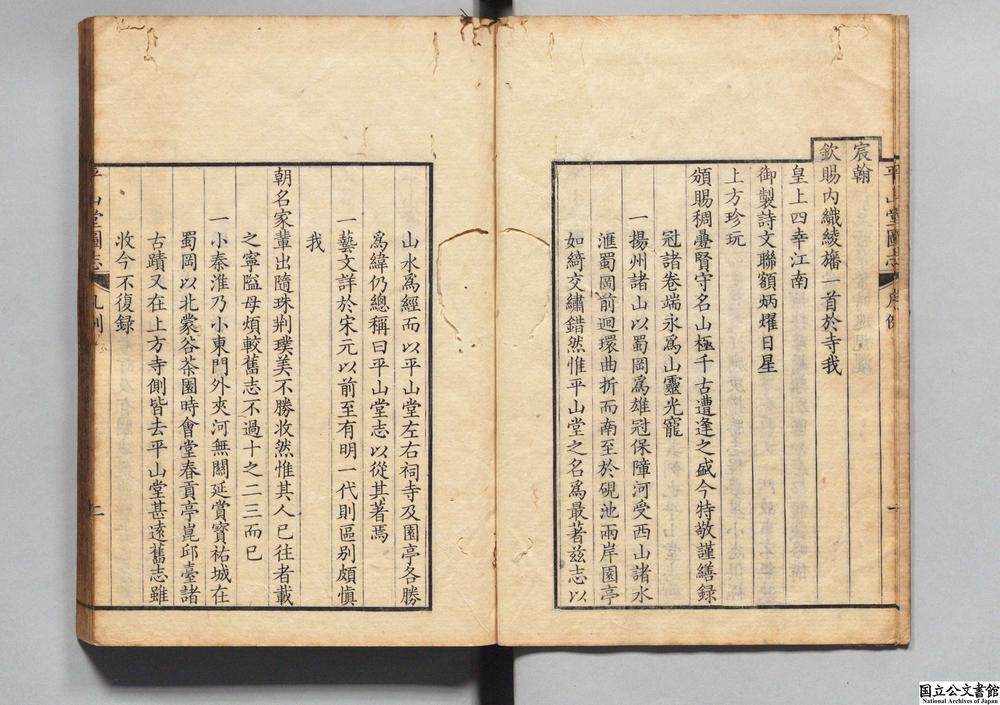 宸翰
欽賜內織綾旛一首於寺我
皇上四幸江南
御製詩文聯額炳燿日星
上方珍玩
頒賜稠疊賢守名山極千古遭逢之盛今特敬謹繕録
冠諸卷端永爲山靈光寵
一揚州諸山以蜀岡爲雄冠保障河受西山諸水
滙蜀岡前迴環曲折而南至於硯池兩岸園亭
如綺交繡錯然惟平山堂之名爲最著兹志以
山水爲經而以平山堂左右祠寺及園亭各勝
爲緯仍總稱曰平山堂志以從其著焉
一藝文詳於宋元以前至有明一代則區别頗愼
我
朝名家輩出隨珠荆璞美不勝收然惟其人已往者載
之寧隘毋煩較舊志不過十之二三而已
一小秦淮乃小東門外夾河無關延賞寶祐城在
蜀岡以北蒙谷茶園時會堂春貢亭崑邱臺諸
古蹟又在上方寺側皆去平山堂甚遠舊志雖
收今不復録
平山堂圖志
凡例
二
国立公文書館
National Archives of Japan